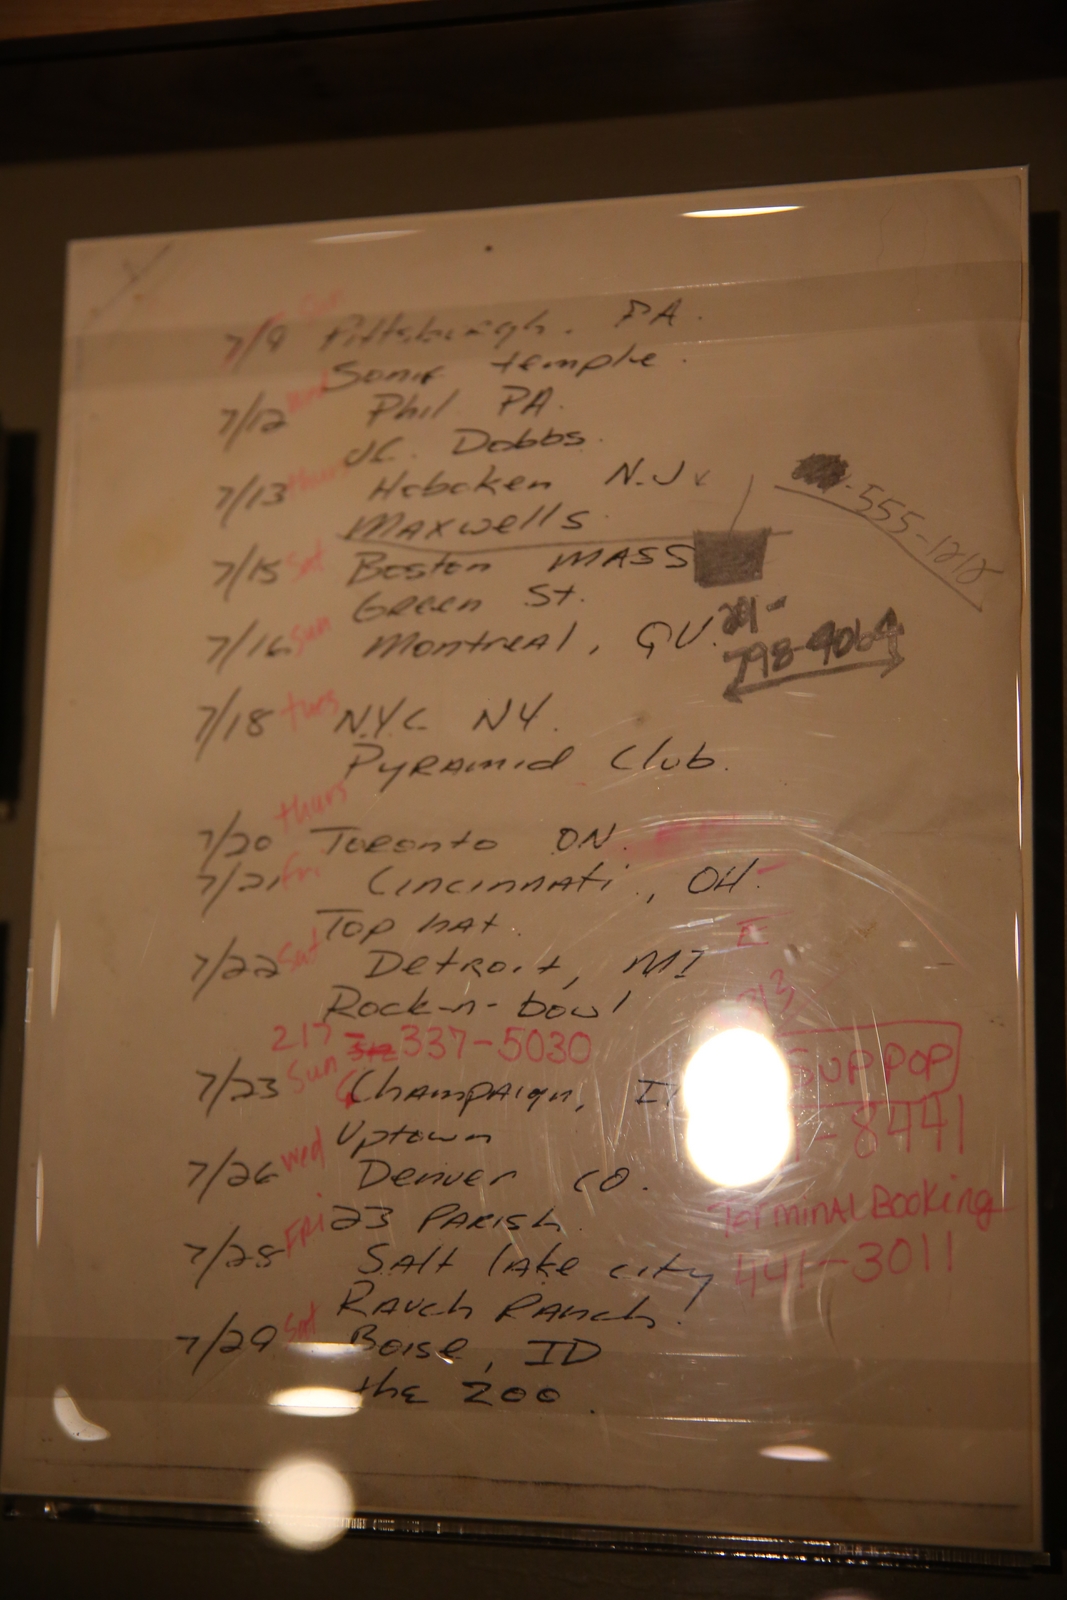 7/9 Sun Pittsburgh. PA.
Sonic temple.
7/12 Wed Phil PA.
JC. Dobbs.
7/13 thurs Hoboken N.J.
Maxwells.
-555-1212
7/15 Sat Boston MASS
Green St.
7/16 Sun Montreal, QU.
798-9064
7/18 tues N.Y.C NY.
Pyramid Club.
7/20 thurs Toronto ON.
7/21 fri Cincinnati, OH.
Top hat.
7/22 Sat Detroit, MI
Rock-n-bowl
313
217- 337-5030
SUB POP
7/23 Sun Champaign,
-8441
Uptown
7/26 wed Denver CO.
23 Parish.
Terminal Booking
441-3011
7/28 FRI Salt lake city
Rauch Ranch.
7/29 Sat Boise, ID
the Zoo.